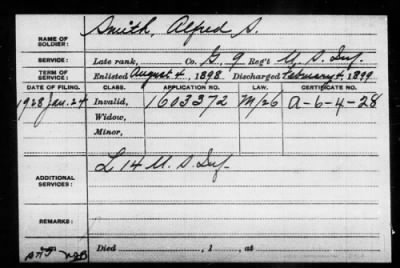 NAME OF SOLDIER: Smith, Alfred S.
SERVICE: Late rank, Co. G, 9 Reg't U. S. Inf.
TERM OF SERVICE: Enlisted August 4, 1898. Discharged February 4, 1899.
DATE OF FILING. CLASS. APPLICATION NO. LAW. CERTIFICATE NO.
1928 Jan. 24 Invalid, 1603372 M/26 A-6-4-28
Widow,
Minor,
ADDITIONAL SERVICES: L 14 U. S. Inf.
REMARKS:
Died , 1 , at